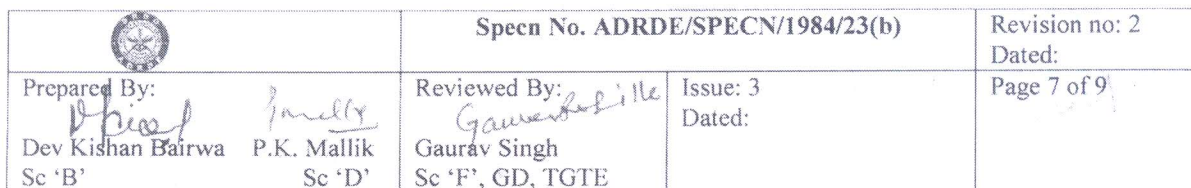 Specn No. ADRDE/SPECN/1984/23(b)
Revision no: 2
Dated:
Prepared By:
Dev Kishan Bairwa P.K. Mallik
Sc ‘B’ Sc ‘D’
Reviewed By:
Gaurav Singh
Sc ‘F’, GD, TGTE
Issue: 3
Dated:
Page 7 of 9